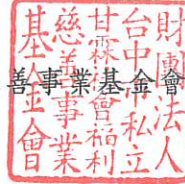 財團法人
台中市私立
甘霖社會福利
慈善事業
基金會
善事業基金會